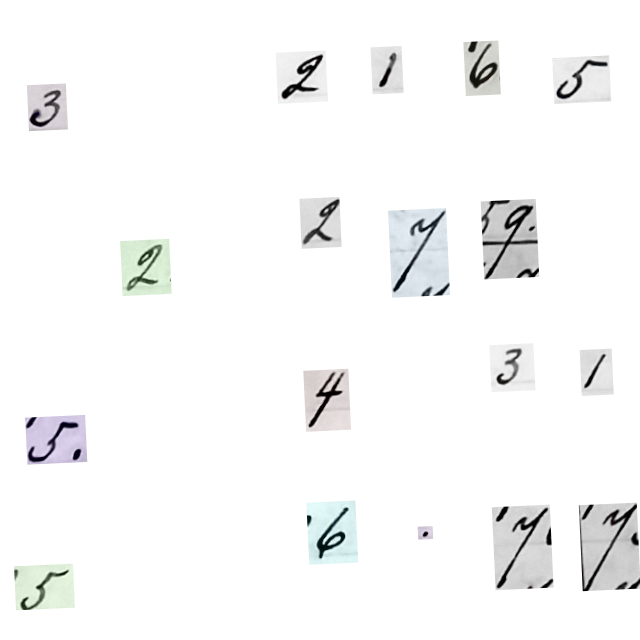 3 2 1 6 5
2 2 7 9.
5. 4 3 1
5 6 . 7 7